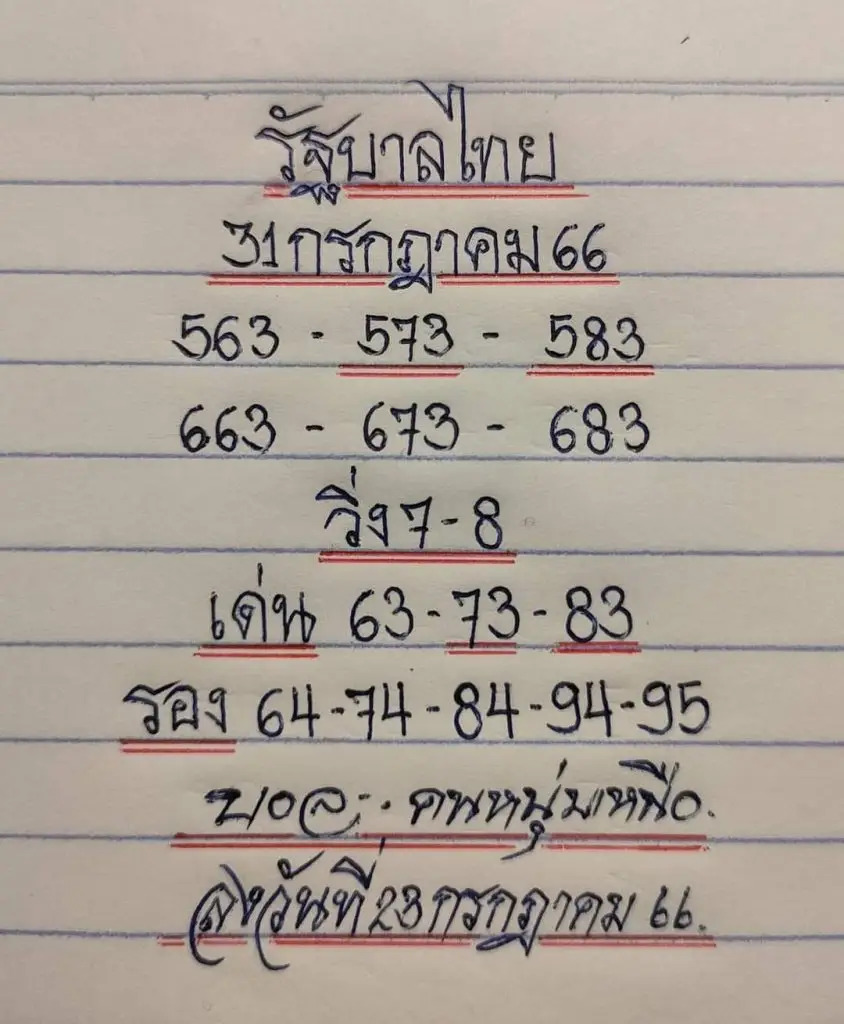 รัฐบาลไทย
31 กรกฎาคม 66
563 - 573 - 583
663 - 673 - 683
วิ่ง 7 - 8
เด่น 63 - 73 - 83
รอง 64 - 74 - 84 - 94 - 95
คนหนุ่มเหนือ.
ลงวันที่ 23 กรกฎาคม 66.